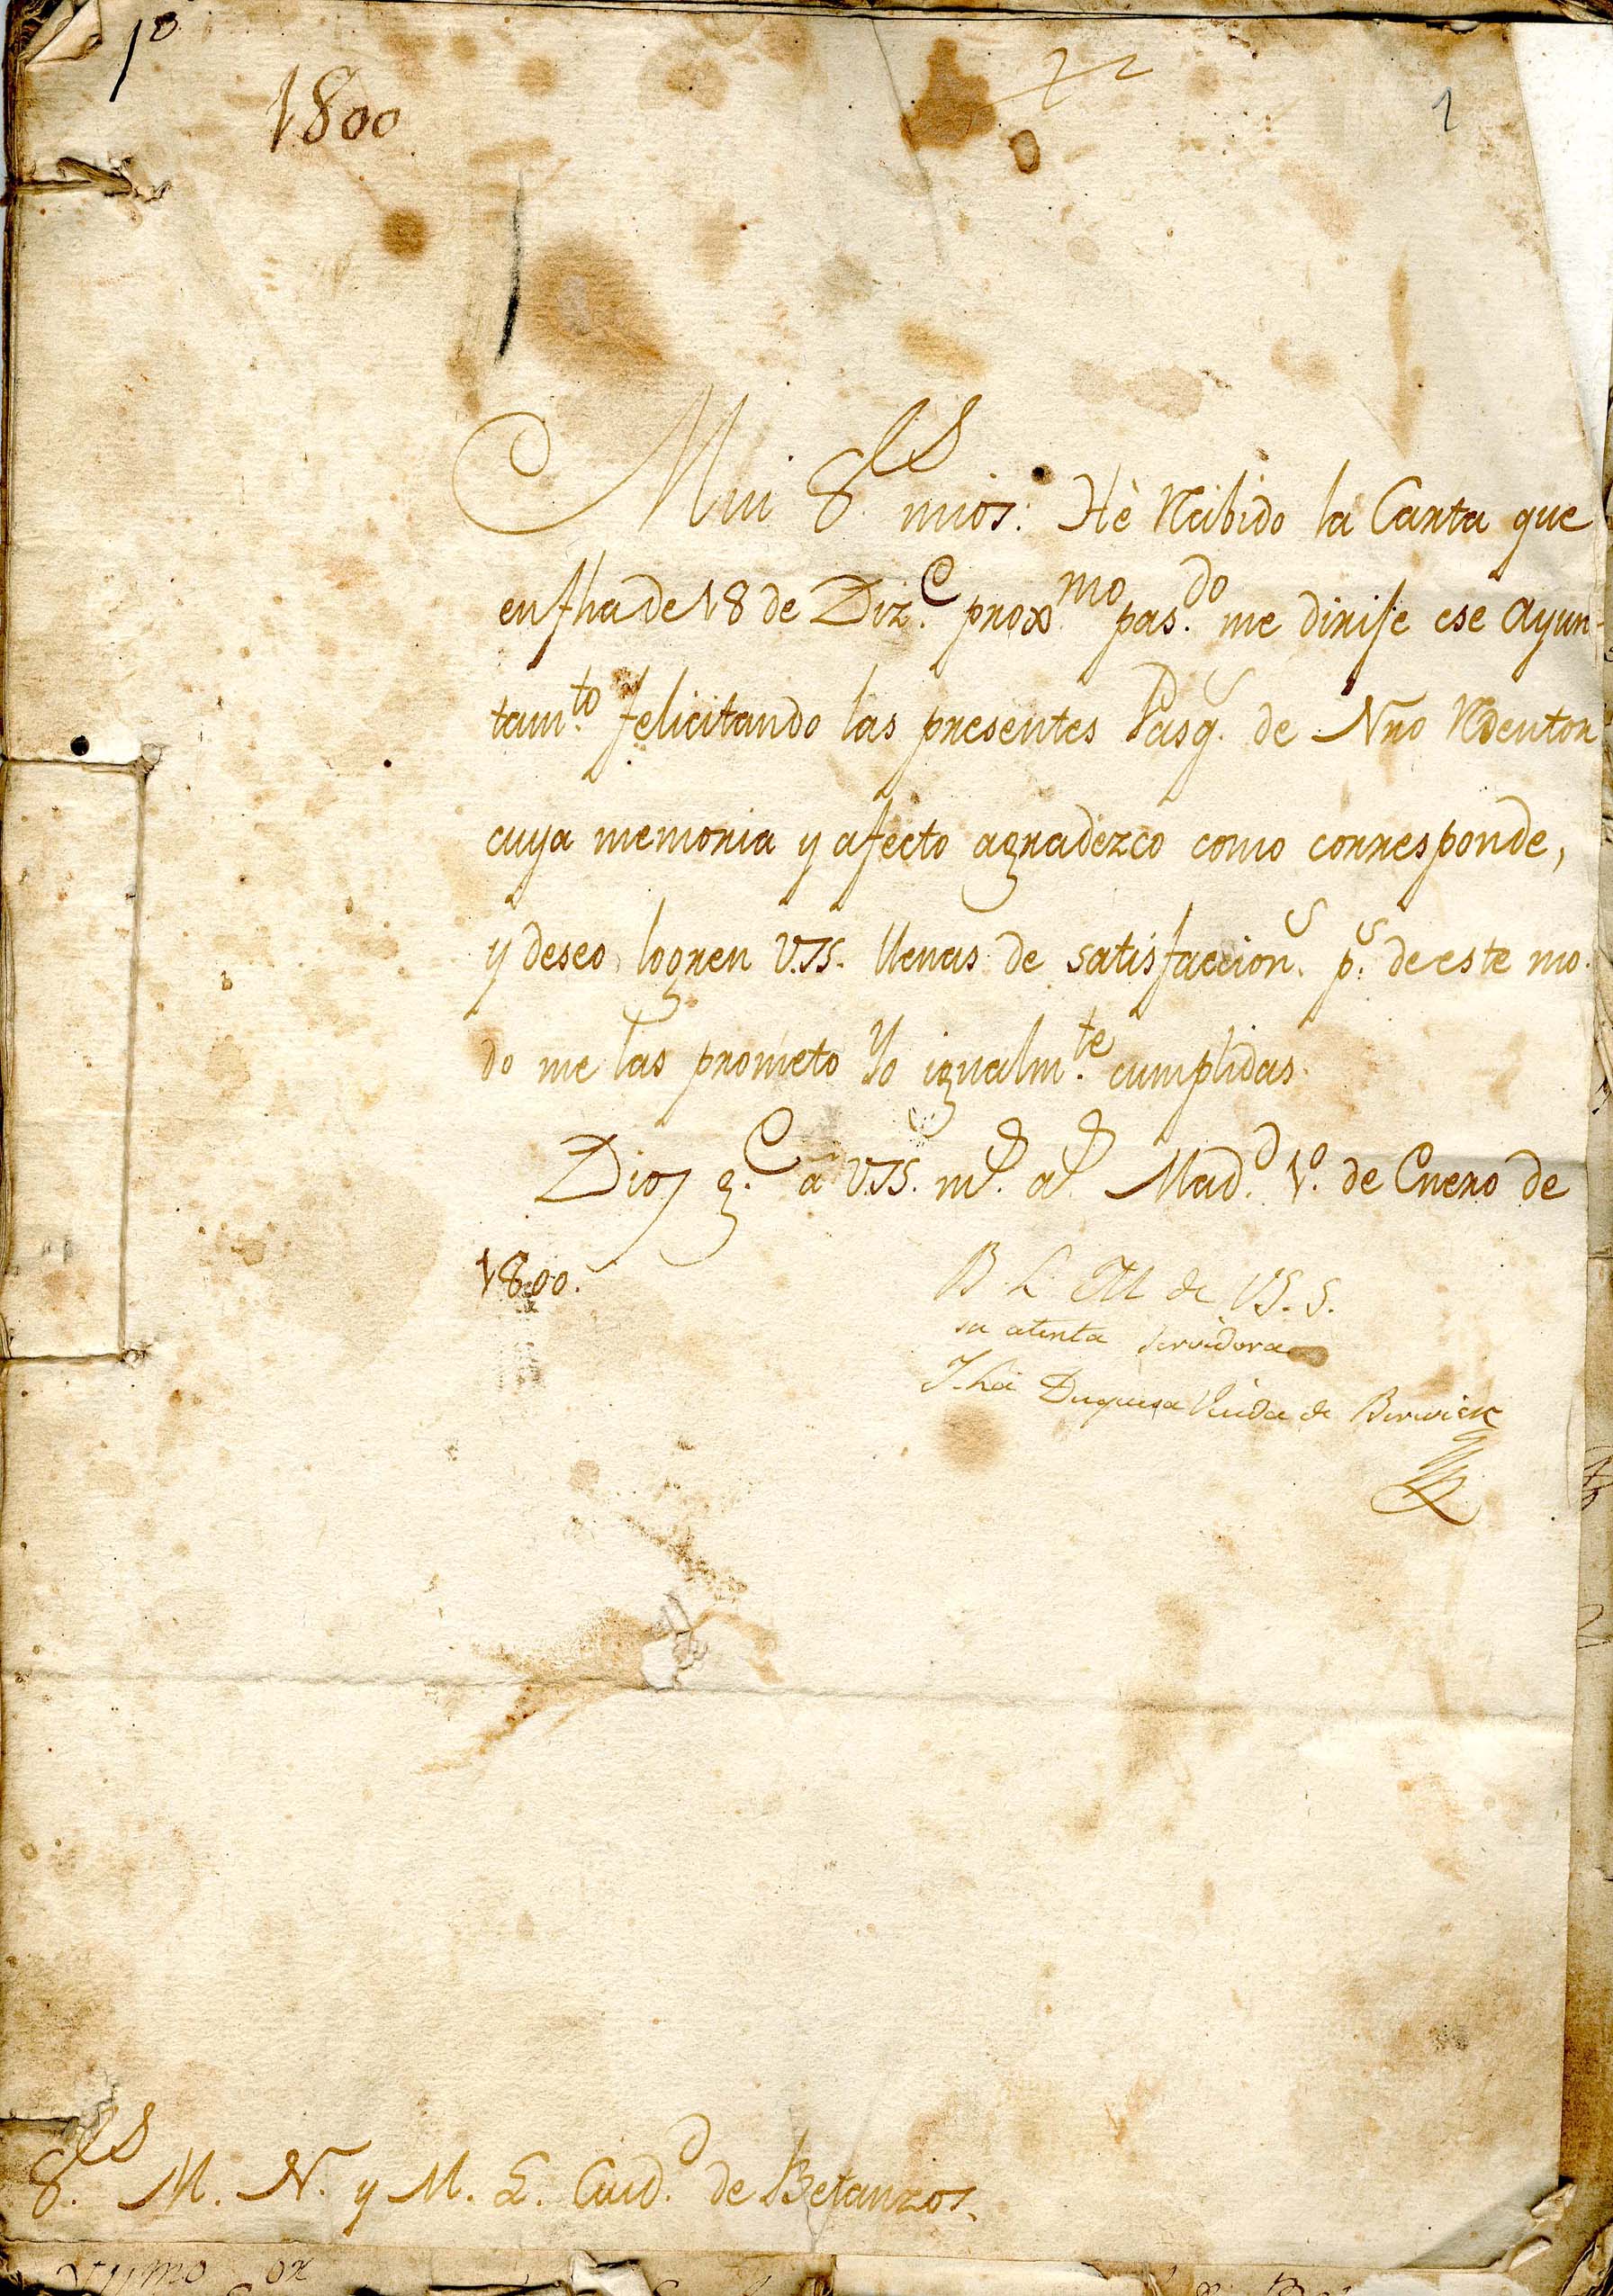 1º
1800
1
Mui S.res mios: Hè Recibido la Carta que
en fha de 18 de Diz.e prox.mo pas.do me dirije ese Ayun-
tam.to felicitando las presentes Pasq.s de Nro Redentor
cuya memoria y afecto agradezco como corresponde,
y deseo logren V.SS. llenas de satisfaccion.s p.s de este mo-
do me las prometo Yo igualm.te cumplidas.
Dios g.e à V.SS. m.s a.s Mad.d 1.º de Enero de
1800.
B L M de VS.S.
su atenta servidora
La Duquesa Viuda de Berwick
S.res M. N. y M. L. Ciud.d de Betanzos.